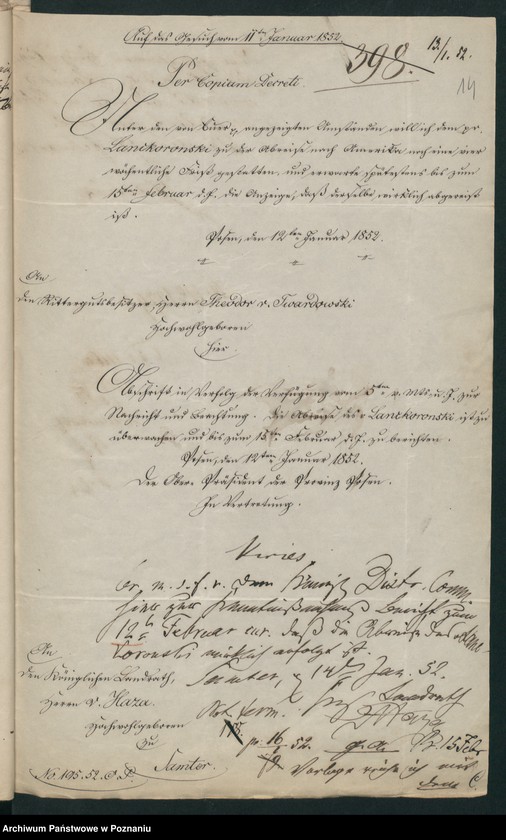 Auf das Gesuch vom 11ten Januar 1852.
13/1. 52.
398.
14
Per Copiam Decreti.
Unter den von Euer p. angezeigten Umständen will ich dem pr.
Lanckoronski zu der Abreise nach Amerika noch eine vier
wöchentliche Frist gestatten, und erwarte spätestens bis zum
15ten Februar d. J. die Anzeige, daß derselbe wirklich abgereist
ist.
Posen, den 12ten Januar 1852.
An
den Rittergutsbesitzer, Herrn Theodor v. Twardowski
Hochwohlgeboren
hier.
Abschrift in Verfolg der Verfügung vom 5ten v. Mts. u. J. zur
Nachricht und Beachtung. Die Abreise des p. Lanckoronski ist zu
überwachen und bis zum 15ten Februar d. J. zu berichten.
Posen, den 12ten Januar 1852.
Der Ober-Präsident der Provinz Posen.
In Vertretung.
br. m. dem Königl. Distr. Comm.
hier zur Kenntnißnahme Bericht zum
12ten Februar cur. daß die Abreise des
wirklich erfolgt ist.
Samter, 14ten Jan. 52.
Landrath
An
den Königlichen Landrath,
Herrn v. Haza
Hochwohlgeboren
zu
Samter.
Not. Term.
pr. 16/1 52.
15 Febr
No. 195. 52. O. P.
Archiwum Państwowe w Poznaniu